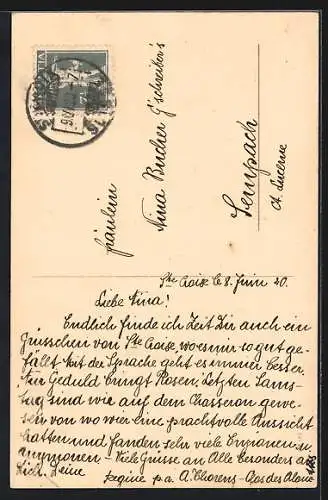 HELVETIA
Fräulein
Nina Bucher G'schreiber's
Sempach
Ct. Lucerne
Ste Croix le 8. Juin 20.
Liebe Nina!
Endlich finde ich Zeit Dir auch ein
Grüsschen von Ste Croix, wo es mir so gut ge-
fällt. Mit der Sprache geht es immer besser.
Nur Geduld bringt Rosen. Letzten Sams-
tag sind wir auf dem Chasseron gewe-
sen von wo wir eine prachtvolle Aussicht
hatten und fanden sehr viele Enzianen u.
Anemonen. Viele Grüsse an Alle besonders an
Dich. Deine
Regine p. a. A. Thorens